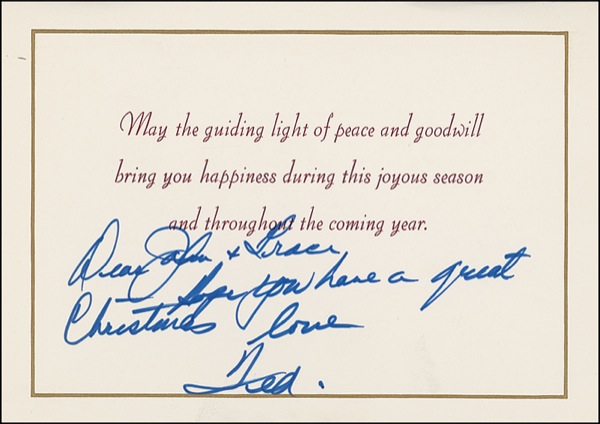 May the guiding light of peace and goodwill
bring you happiness during this joyous season
and throughout the coming year.
Dear John + Grace,
hope you have a great
Christmas love
Ted.